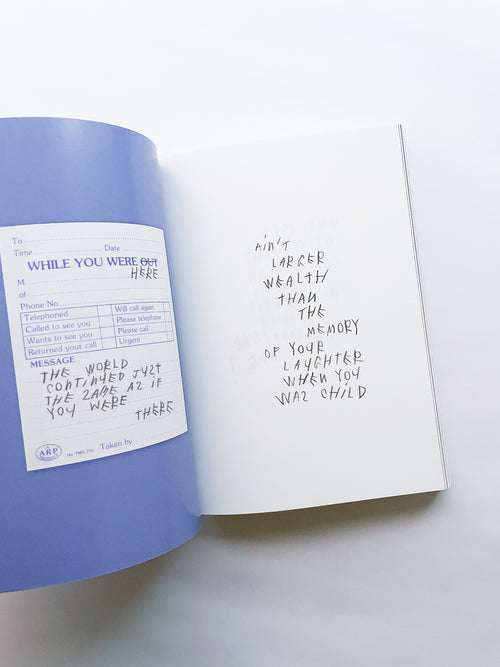 To
Time Date
WHILE YOU WERE OUT
HERE
M
of
Phone No
Telephoned Will call again
Called to see you Please telephone
Wants to see you Please call
Returned your call Urgent
MESSAGE
THE WORLD
CONTINUED JUZT
THE ZAME AZ IF
YOU WERE
THERE
ARP
Taken by
AIN'T
LARGER
WEALTH
THAN
THE
MEMORY
OF YOUR
LAUGHTER
WHEN YOU
WAZ CHILD